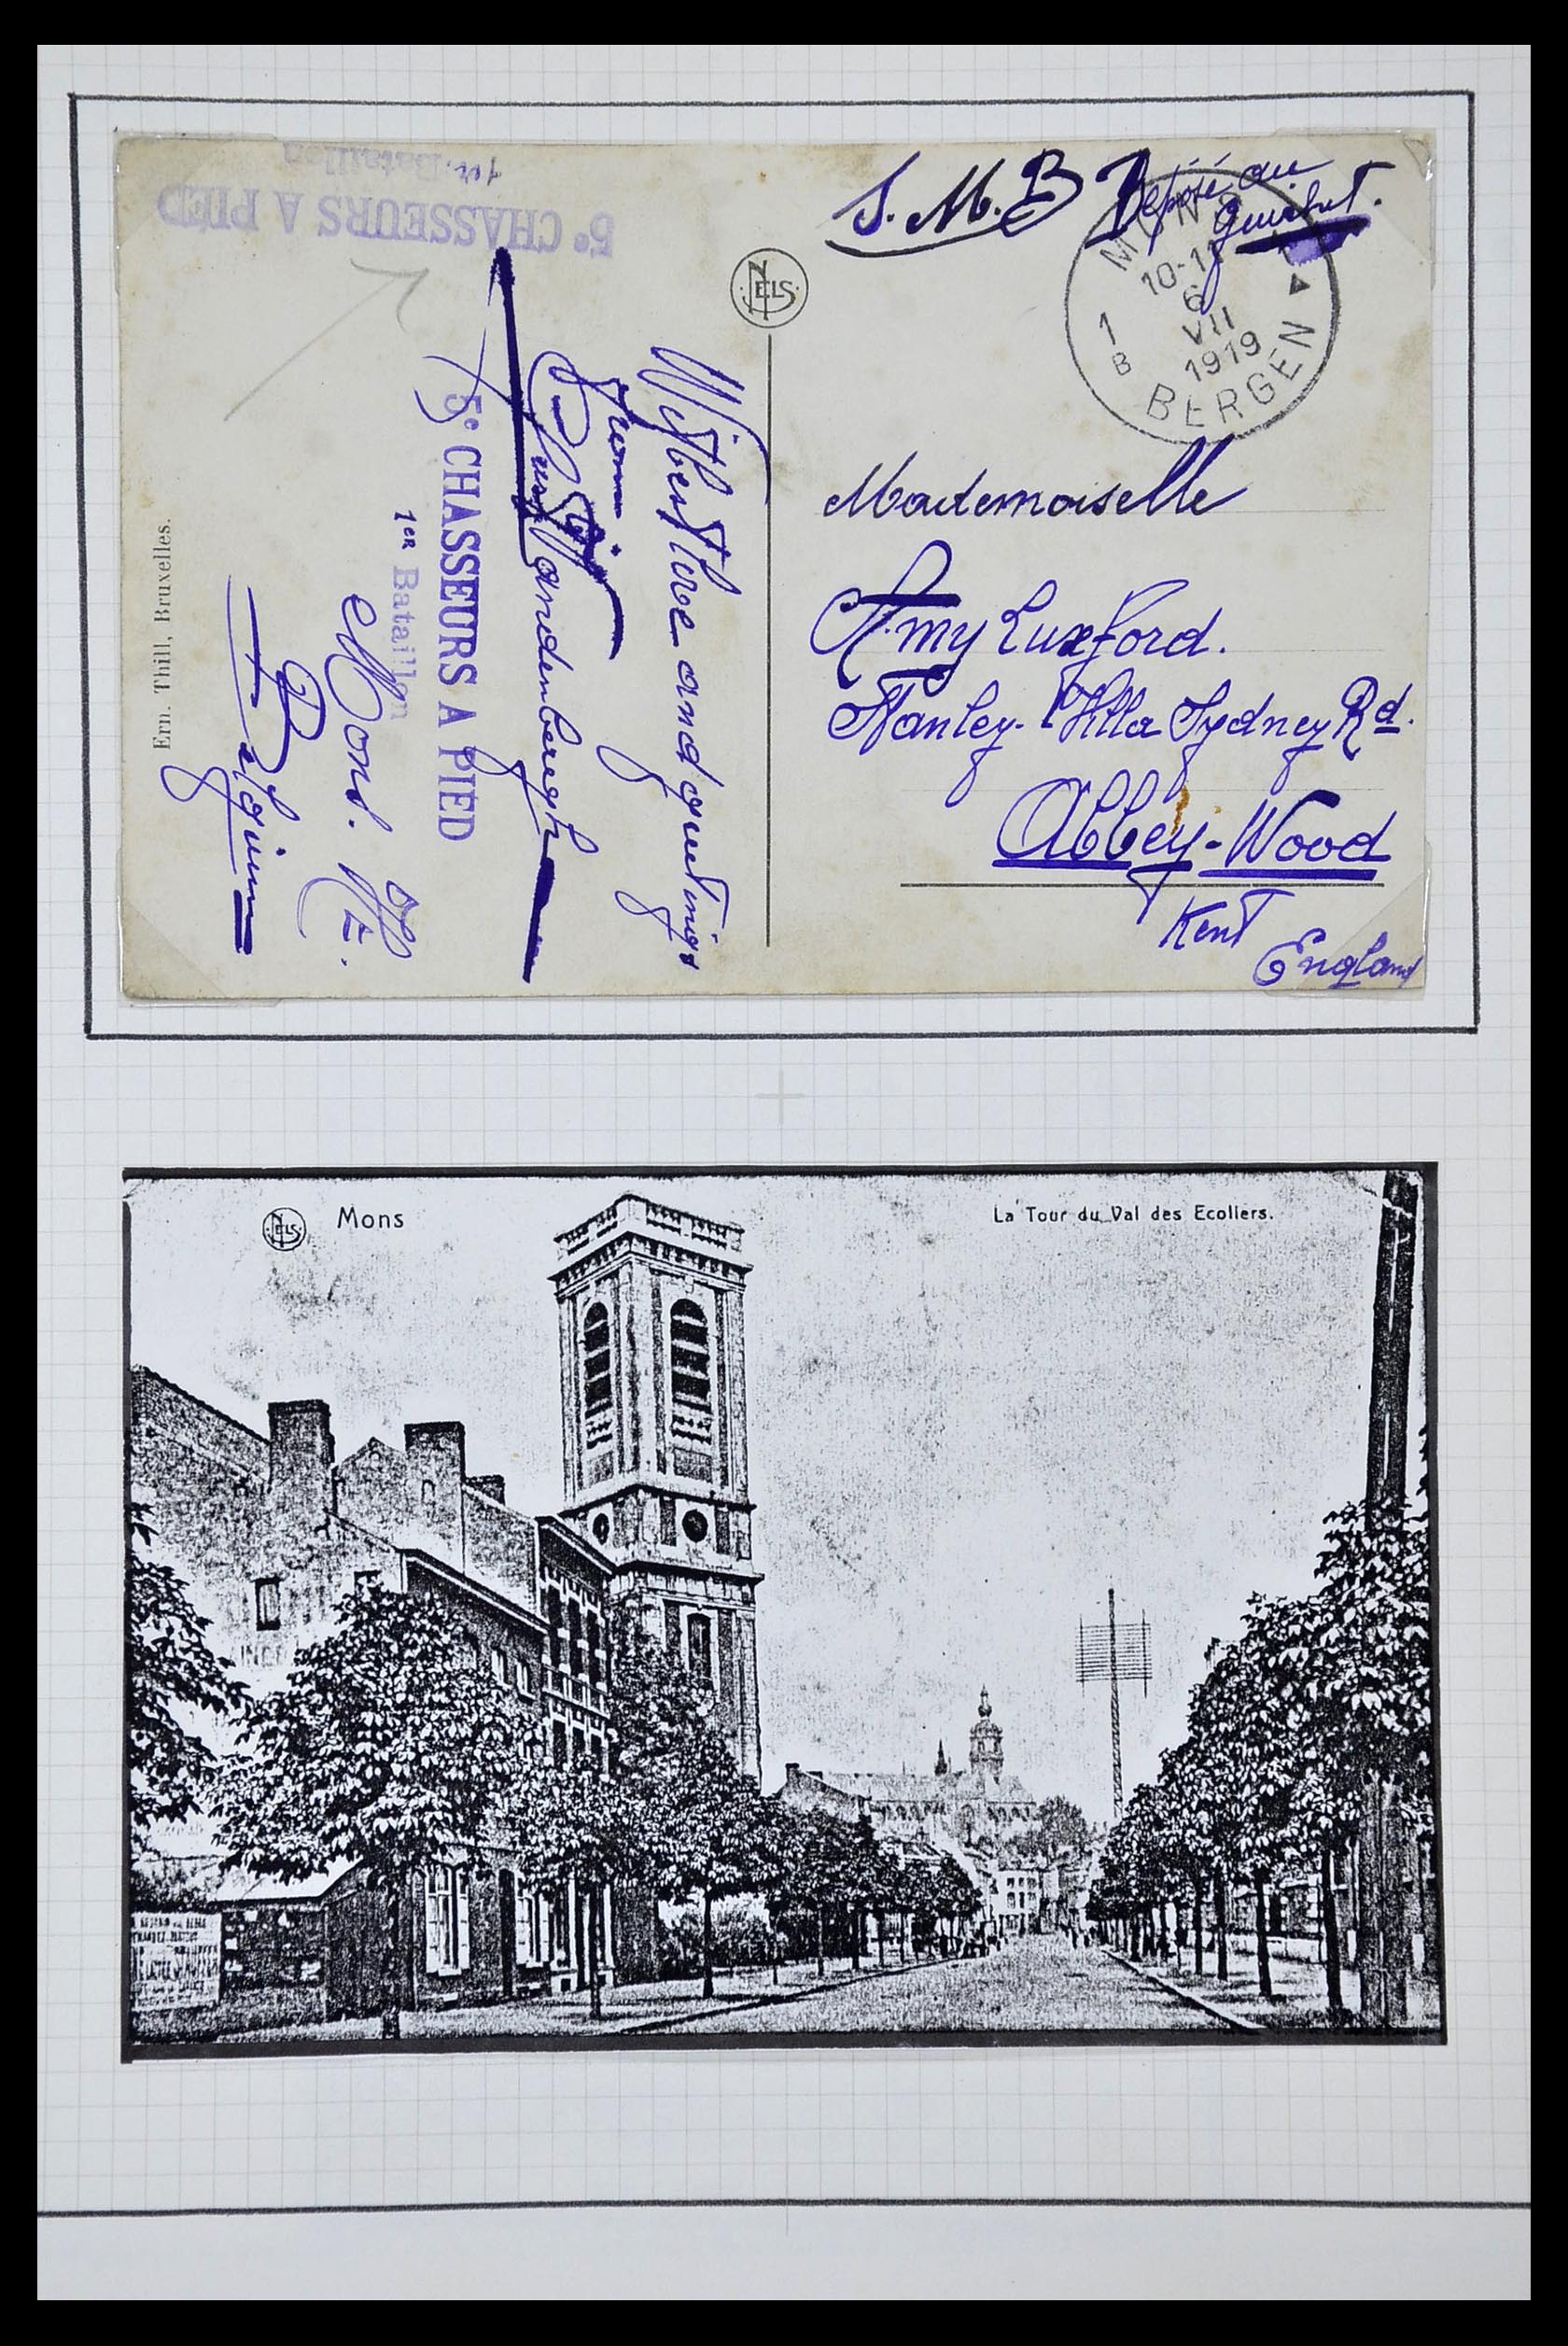 5e CHASSEURS A PIED
1er. Bataillon
S.M.B Déposé au
guichet.
MONS
10-11
6
VII
1919
1
B
BERGEN
NELS
Mademoiselle
Amy Luxford.
Stanley-Villa Sydney Rd.
Abbey-Wood
Kent
England
With love and greetings
from
Vandenbergh
5e CHASSEURS A PIED
1er Bataillon
Mons.
Belgium
Ern. Thill, Bruxelles.
NELS
Mons
La Tour du Val des Ecoliers.